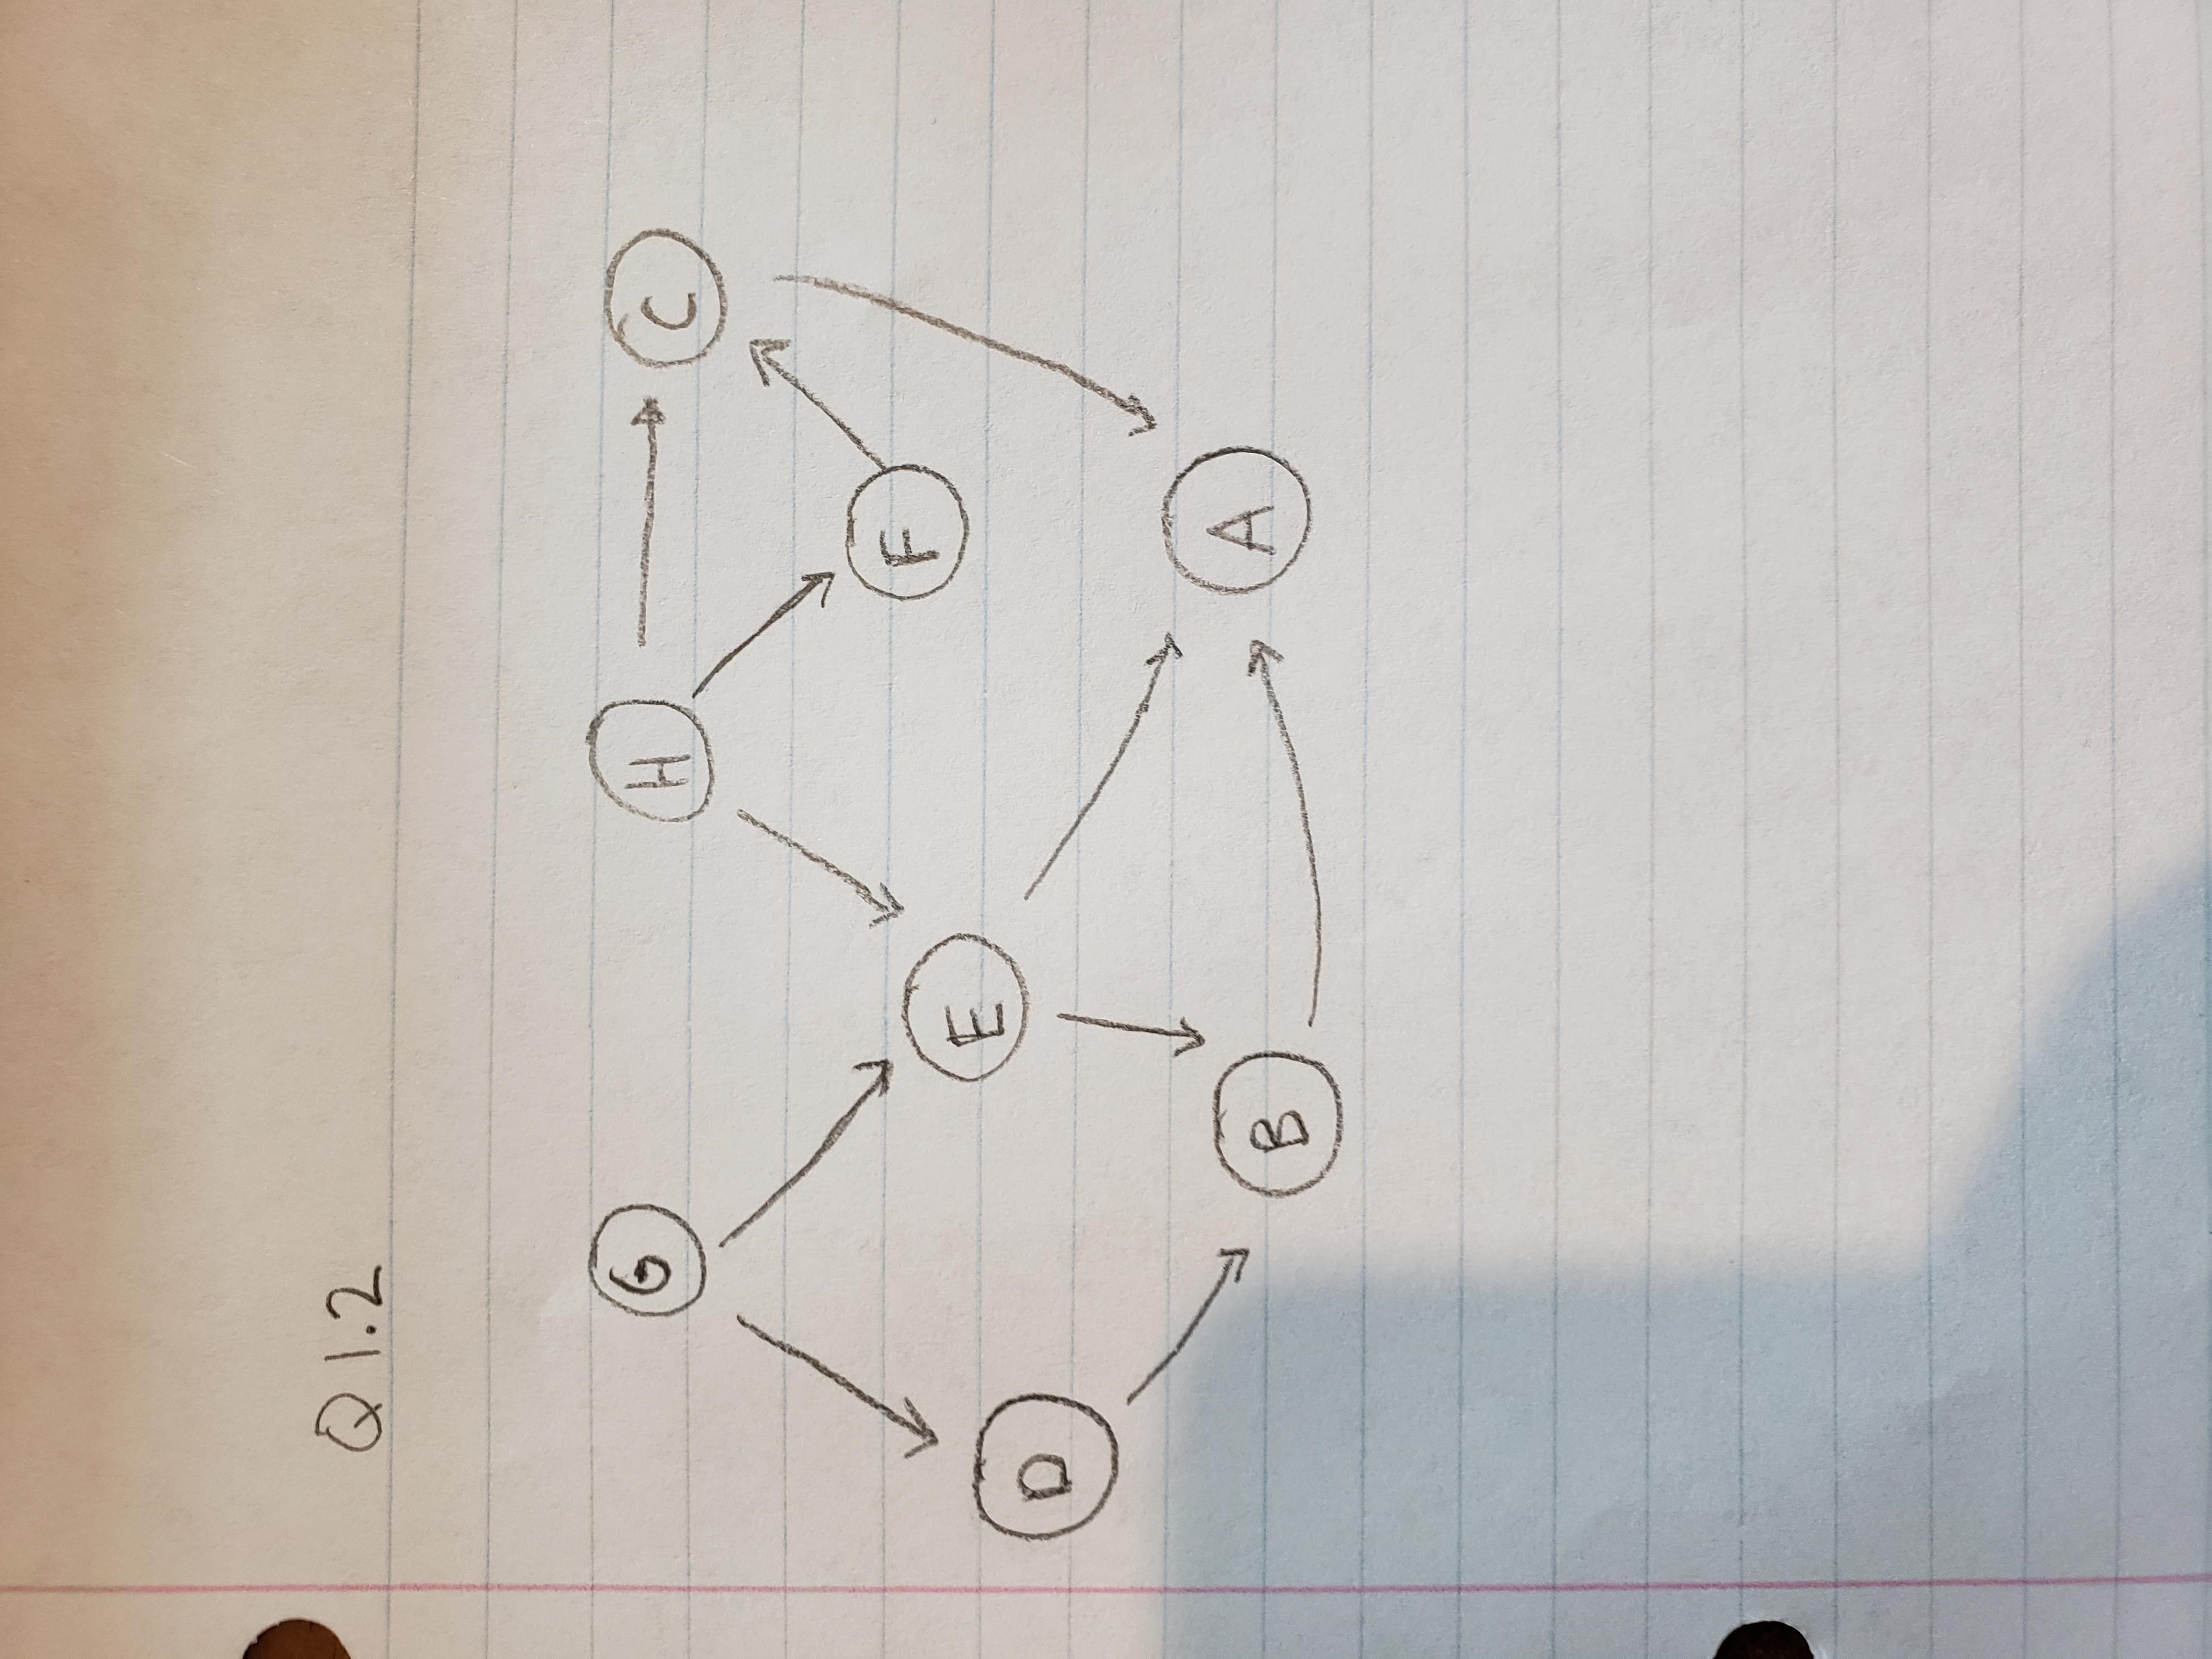 Q1.2
G H C
F
E
D
A
B